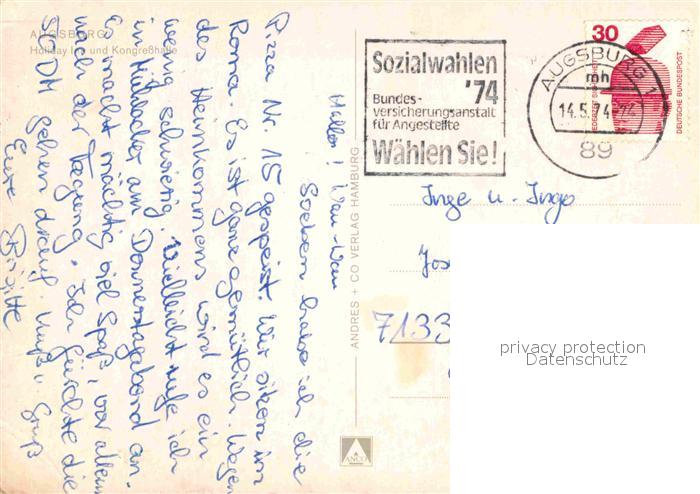 AUGSBURG
Holiday Inn und Kongreßhalle
Hallo! Wau-Wau
Soeben habe ich die
Pizza Nr. 15 gespeist. Wir sitzen im
Roma. Es ist ganz gemütlich. Wegen
des Heimkommens wird es ein
wenig schwierig. Vielleicht rufe ich
in Mühlacker am Donnerstagabend an.
Es macht mächtig viel Spaß, vor allem
nach der Tagung. Ich fürchte die
50 DM gehen drauf. Kuß u. Gruß
Eure Brigitte
ANDRES + CO VERLAG HAMBURG
ANCO
Sozialwahlen
'74
Bundes-
versicherungsanstalt
für Angestellte
Wählen Sie!
AUGSBURG 1
mh
14.5.74
89
30
DEUTSCHE BUNDESPOST
Inge u. Inges
Jos
7133
privacy protection
Datenschutz